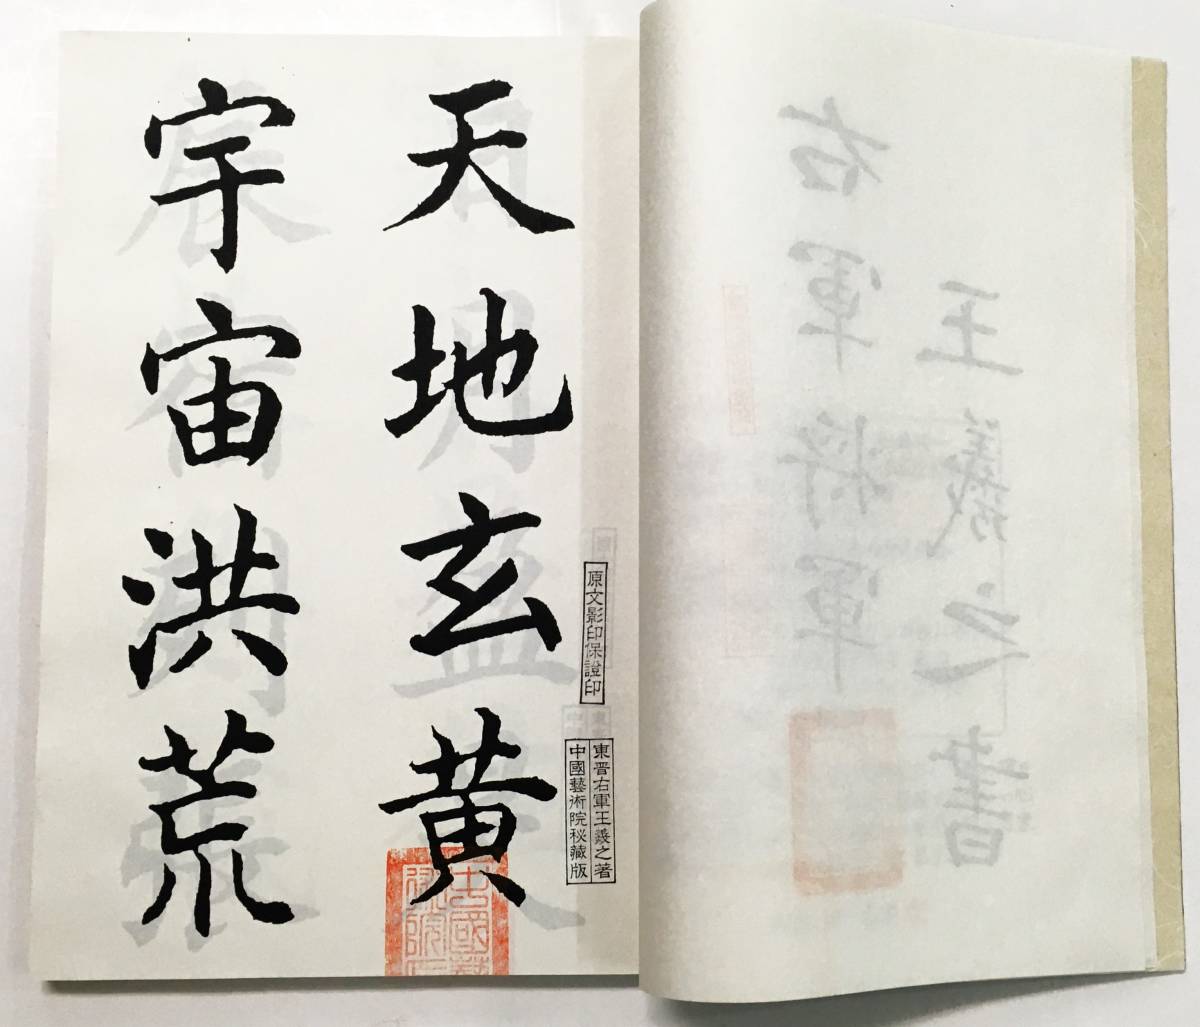 天地玄黄
宇宙洪荒
原文影印保證印
東晋右軍王羲之著
中國藝術院秘藏版
王羲之書
右軍将軍